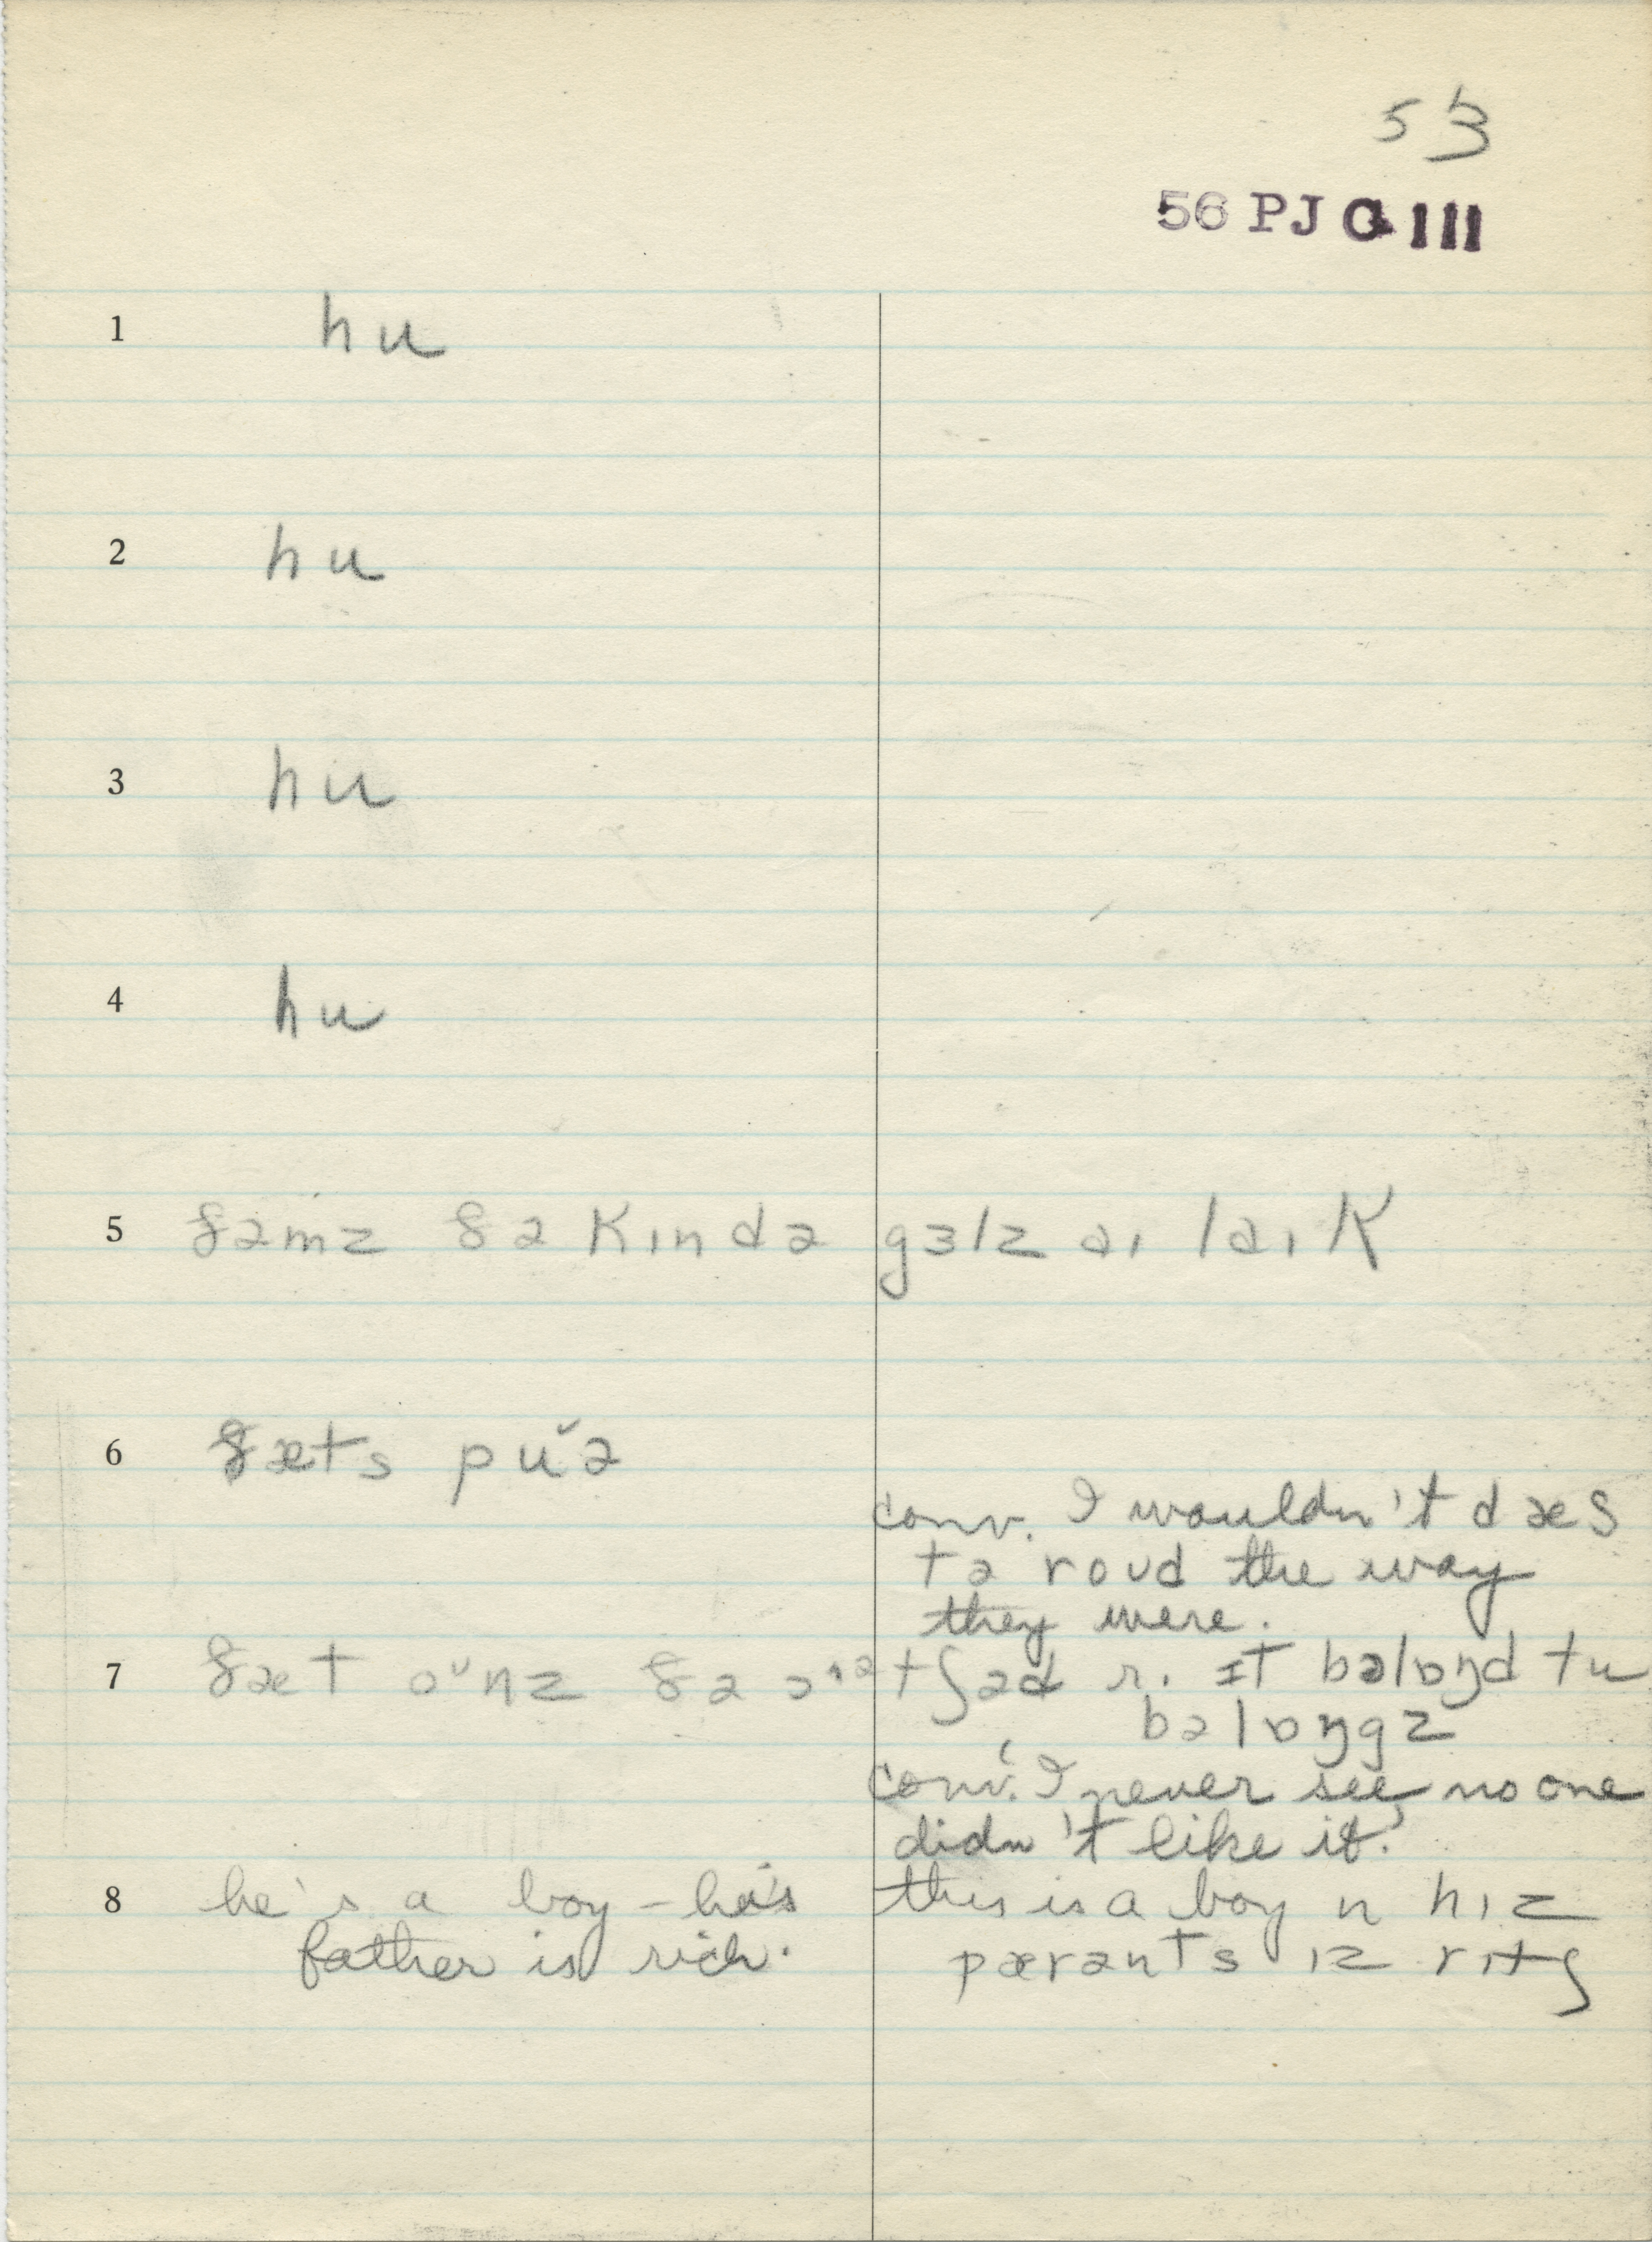 53
56 PJ G III
1 hu
2 hu
3 hu
4 hu
5 ðəmz ðə kɪndə gɜlz aɪ laɪk
6 ðæts puˇə
conv. I wouldn't dæs
tə roud the way
they were.
7 ðæt oᵘnz ðə ɔɪᵊtʃəd r. ɪt bəlɒŋd tu
bəlɒŋgz
conv. I never see no one
didn't like it.
8 he's a boy – his this is a boy n hɪz
father is rich. pærənts ɪz rɪtʃ